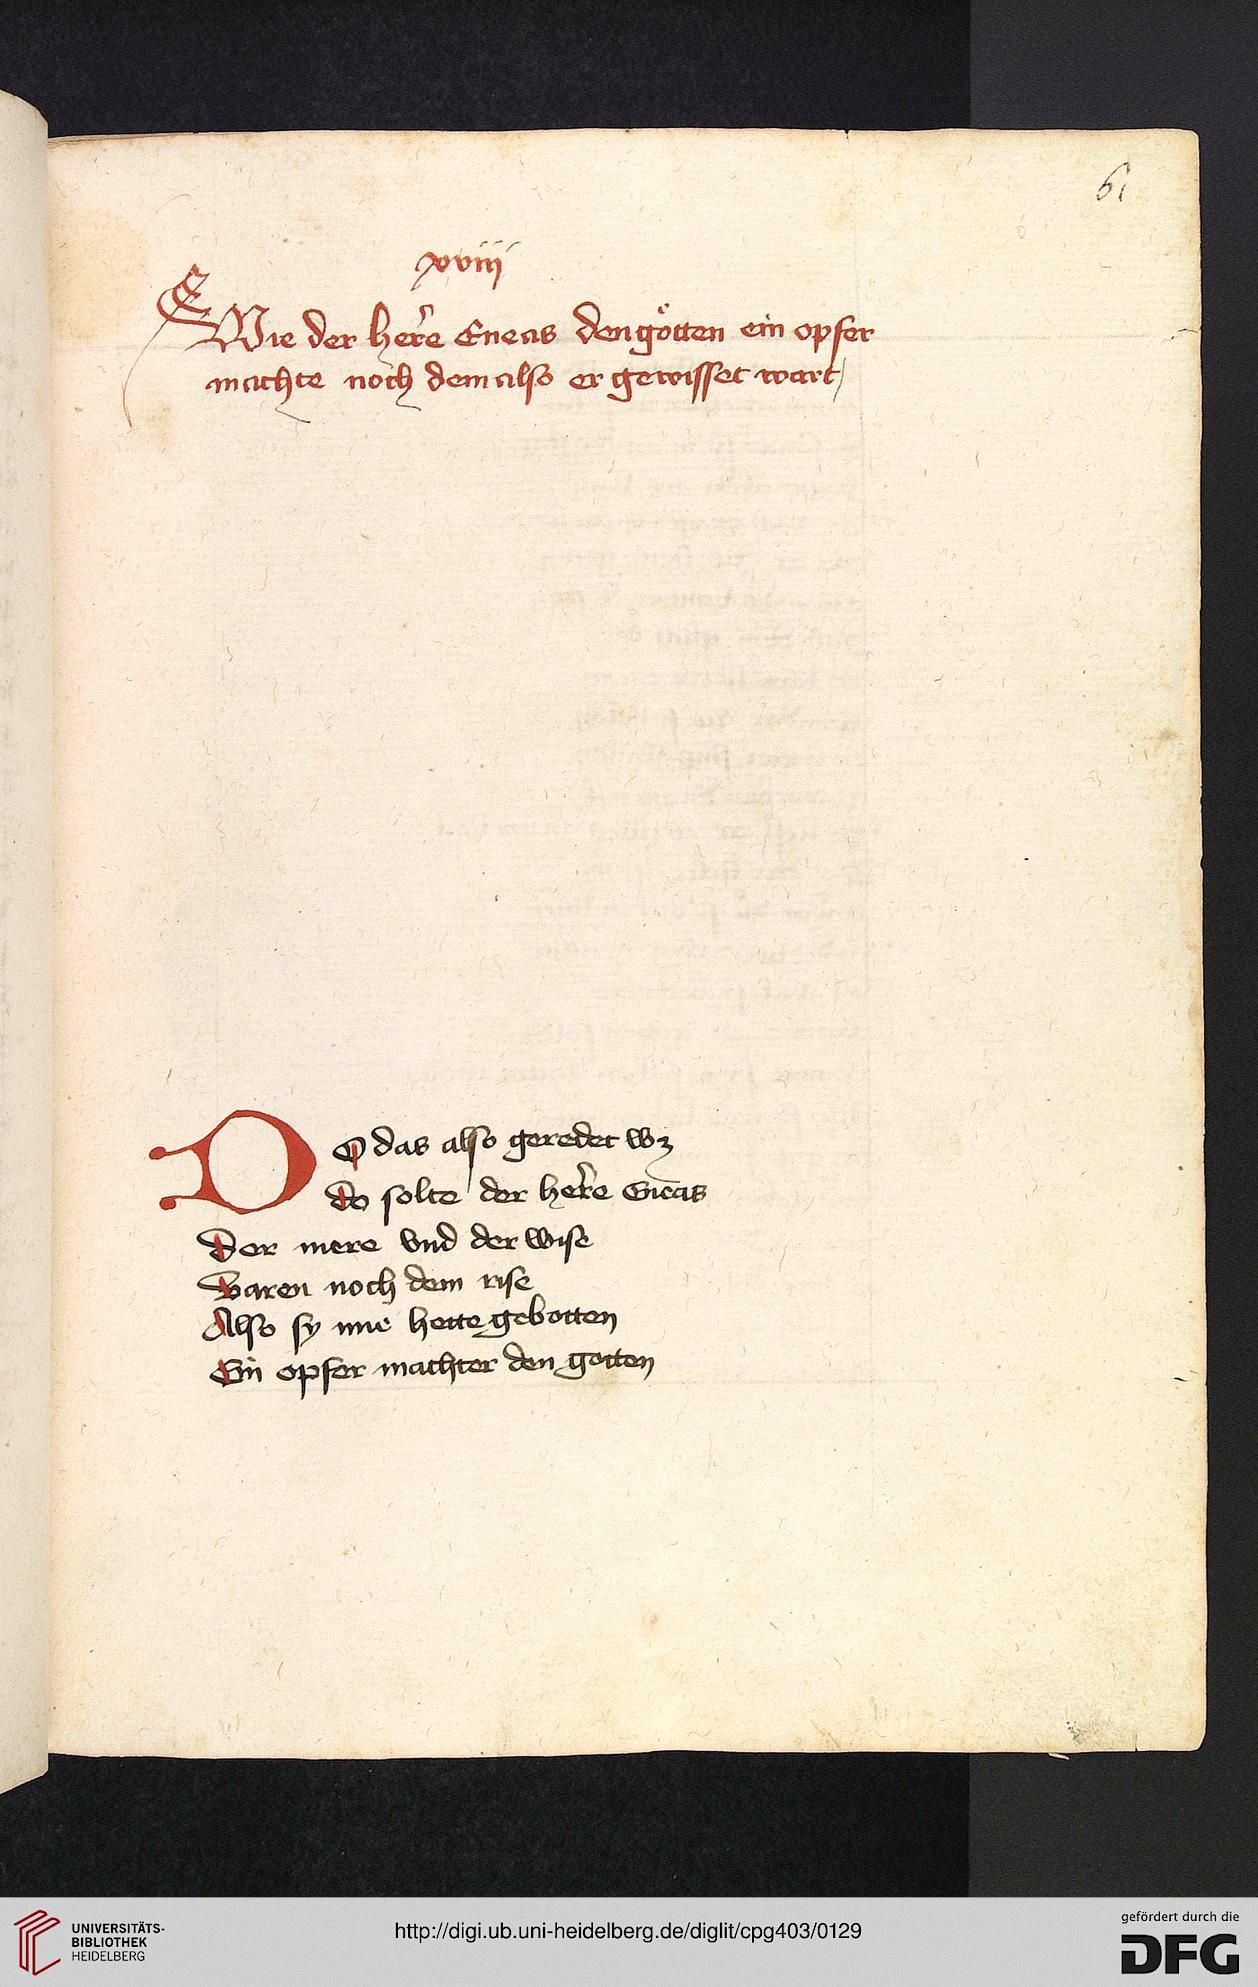 61
xviii
Wie der herre Eneas den götten ein opfer
machte noch dem also er gewisset wart
DO das also geredet wz
do solte der herre Eneas
Der mere vnd der wise
Varen noch dem rise
Also sy ime hette gebotten
Ein opfer machter den gotten
UNIVERSITÄTS-
BIBLIOTHEK
HEIDELBERG
http://digi.ub.uni-heidelberg.de/diglit/cpg403/0129
gefördert durch die
DFG